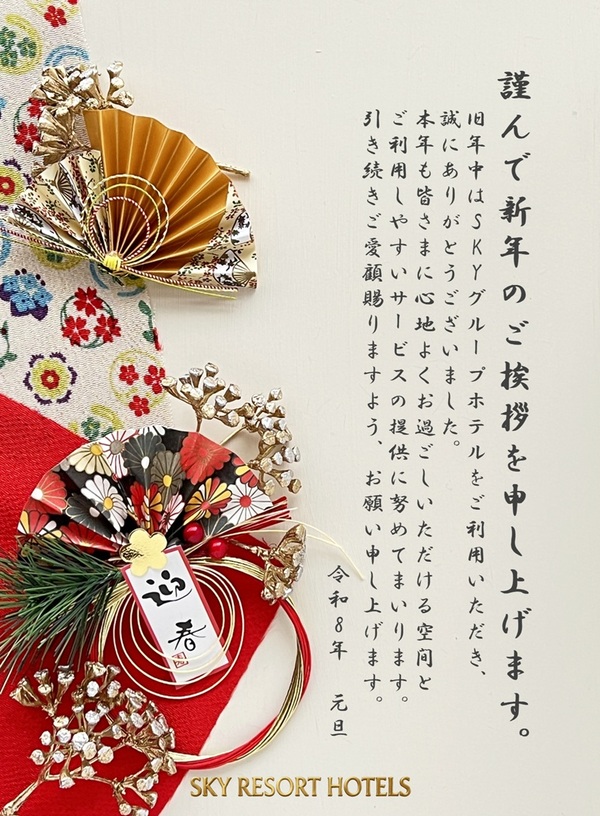 謹んで新年のご挨拶を申し上げます。
旧年中はSKYグループホテルをご利用いただき、
誠にありがとうございました。
本年も皆さまに心地よくお過ごしいただける空間と
ご利用しやすいサービスの提供に努めてまいります。
引き続きご愛顧賜りますよう、お願い申し上げます。
令和8年 元旦
迎春
SKY RESORT HOTELS